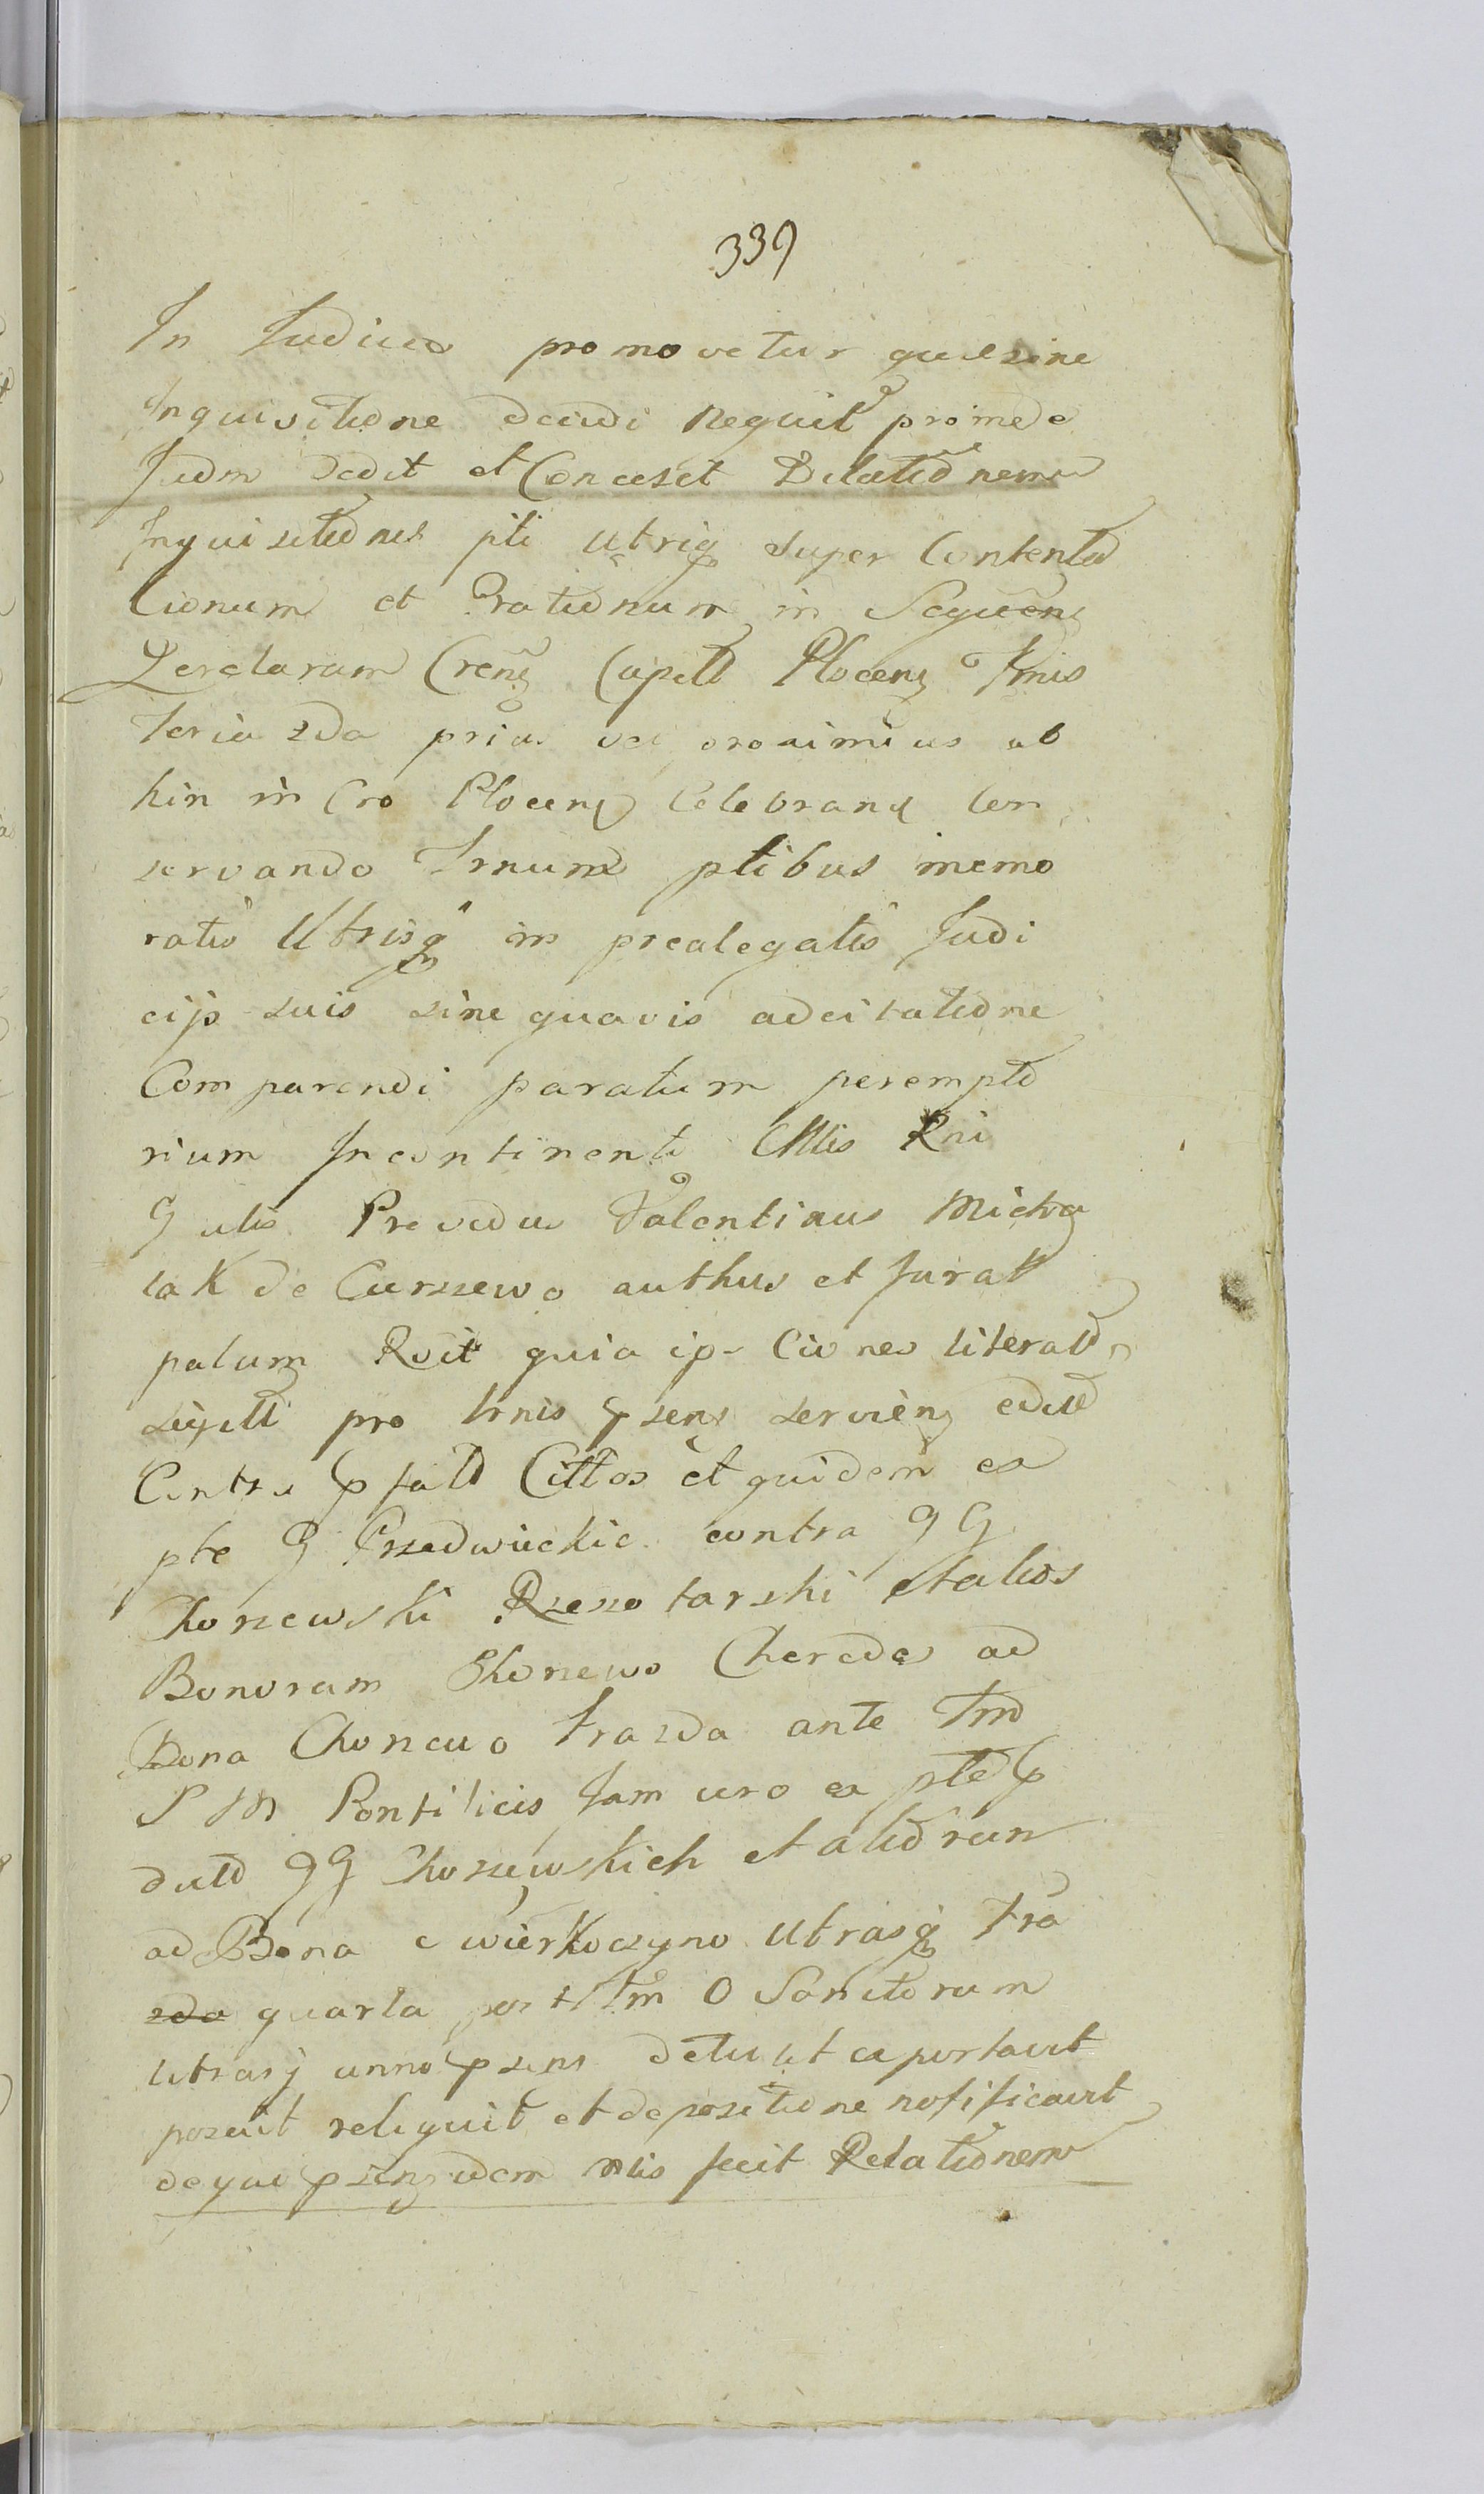 339
In Judicio promovetur que sine
Inquisitione decidi nequit promede
Judm dedit et Concesit Dilationem
Inquisitiones pti utriq super Contento
Cionum et Grationum in Sequen
Querelarum Cren Capit Plocen Trnis
feria 2da pria vel proximius ab
hin in Cro Plocen Celebran Con
servando Trnum ptibus memo
ratis Utrisq in prealegatis Judi
cijs suis sine quavis adcitatione
Comparendi paratum perempto
rium Incontinenti Mlis Rni
Glis Providus Valentinus Micha
lak de Curzewo authus et Jurat
palum Rvit quia ips Ciones literat
sigilli pro trnis psens servien edit
Contra p fatt Cittos et quidem ex
pte G Przedwieckie contra GG
Chorzewski Rzeszotarski et alios
Bonorum Chorzewo Cheredes ad
Bona Chorzewo Tra 2da ante Tm
S M Pontificis Jam vero ex pte p
dutt GG Chorzewskich et aliorum
ad Bona Cwierkoczyno Utrasq Tra
2da quarta post Tm O Sanctorum
Utrasq anno psens detulit exportavit
posuit reliquit et depositione notificavit
de qui psens idem mlis fecit Relationem